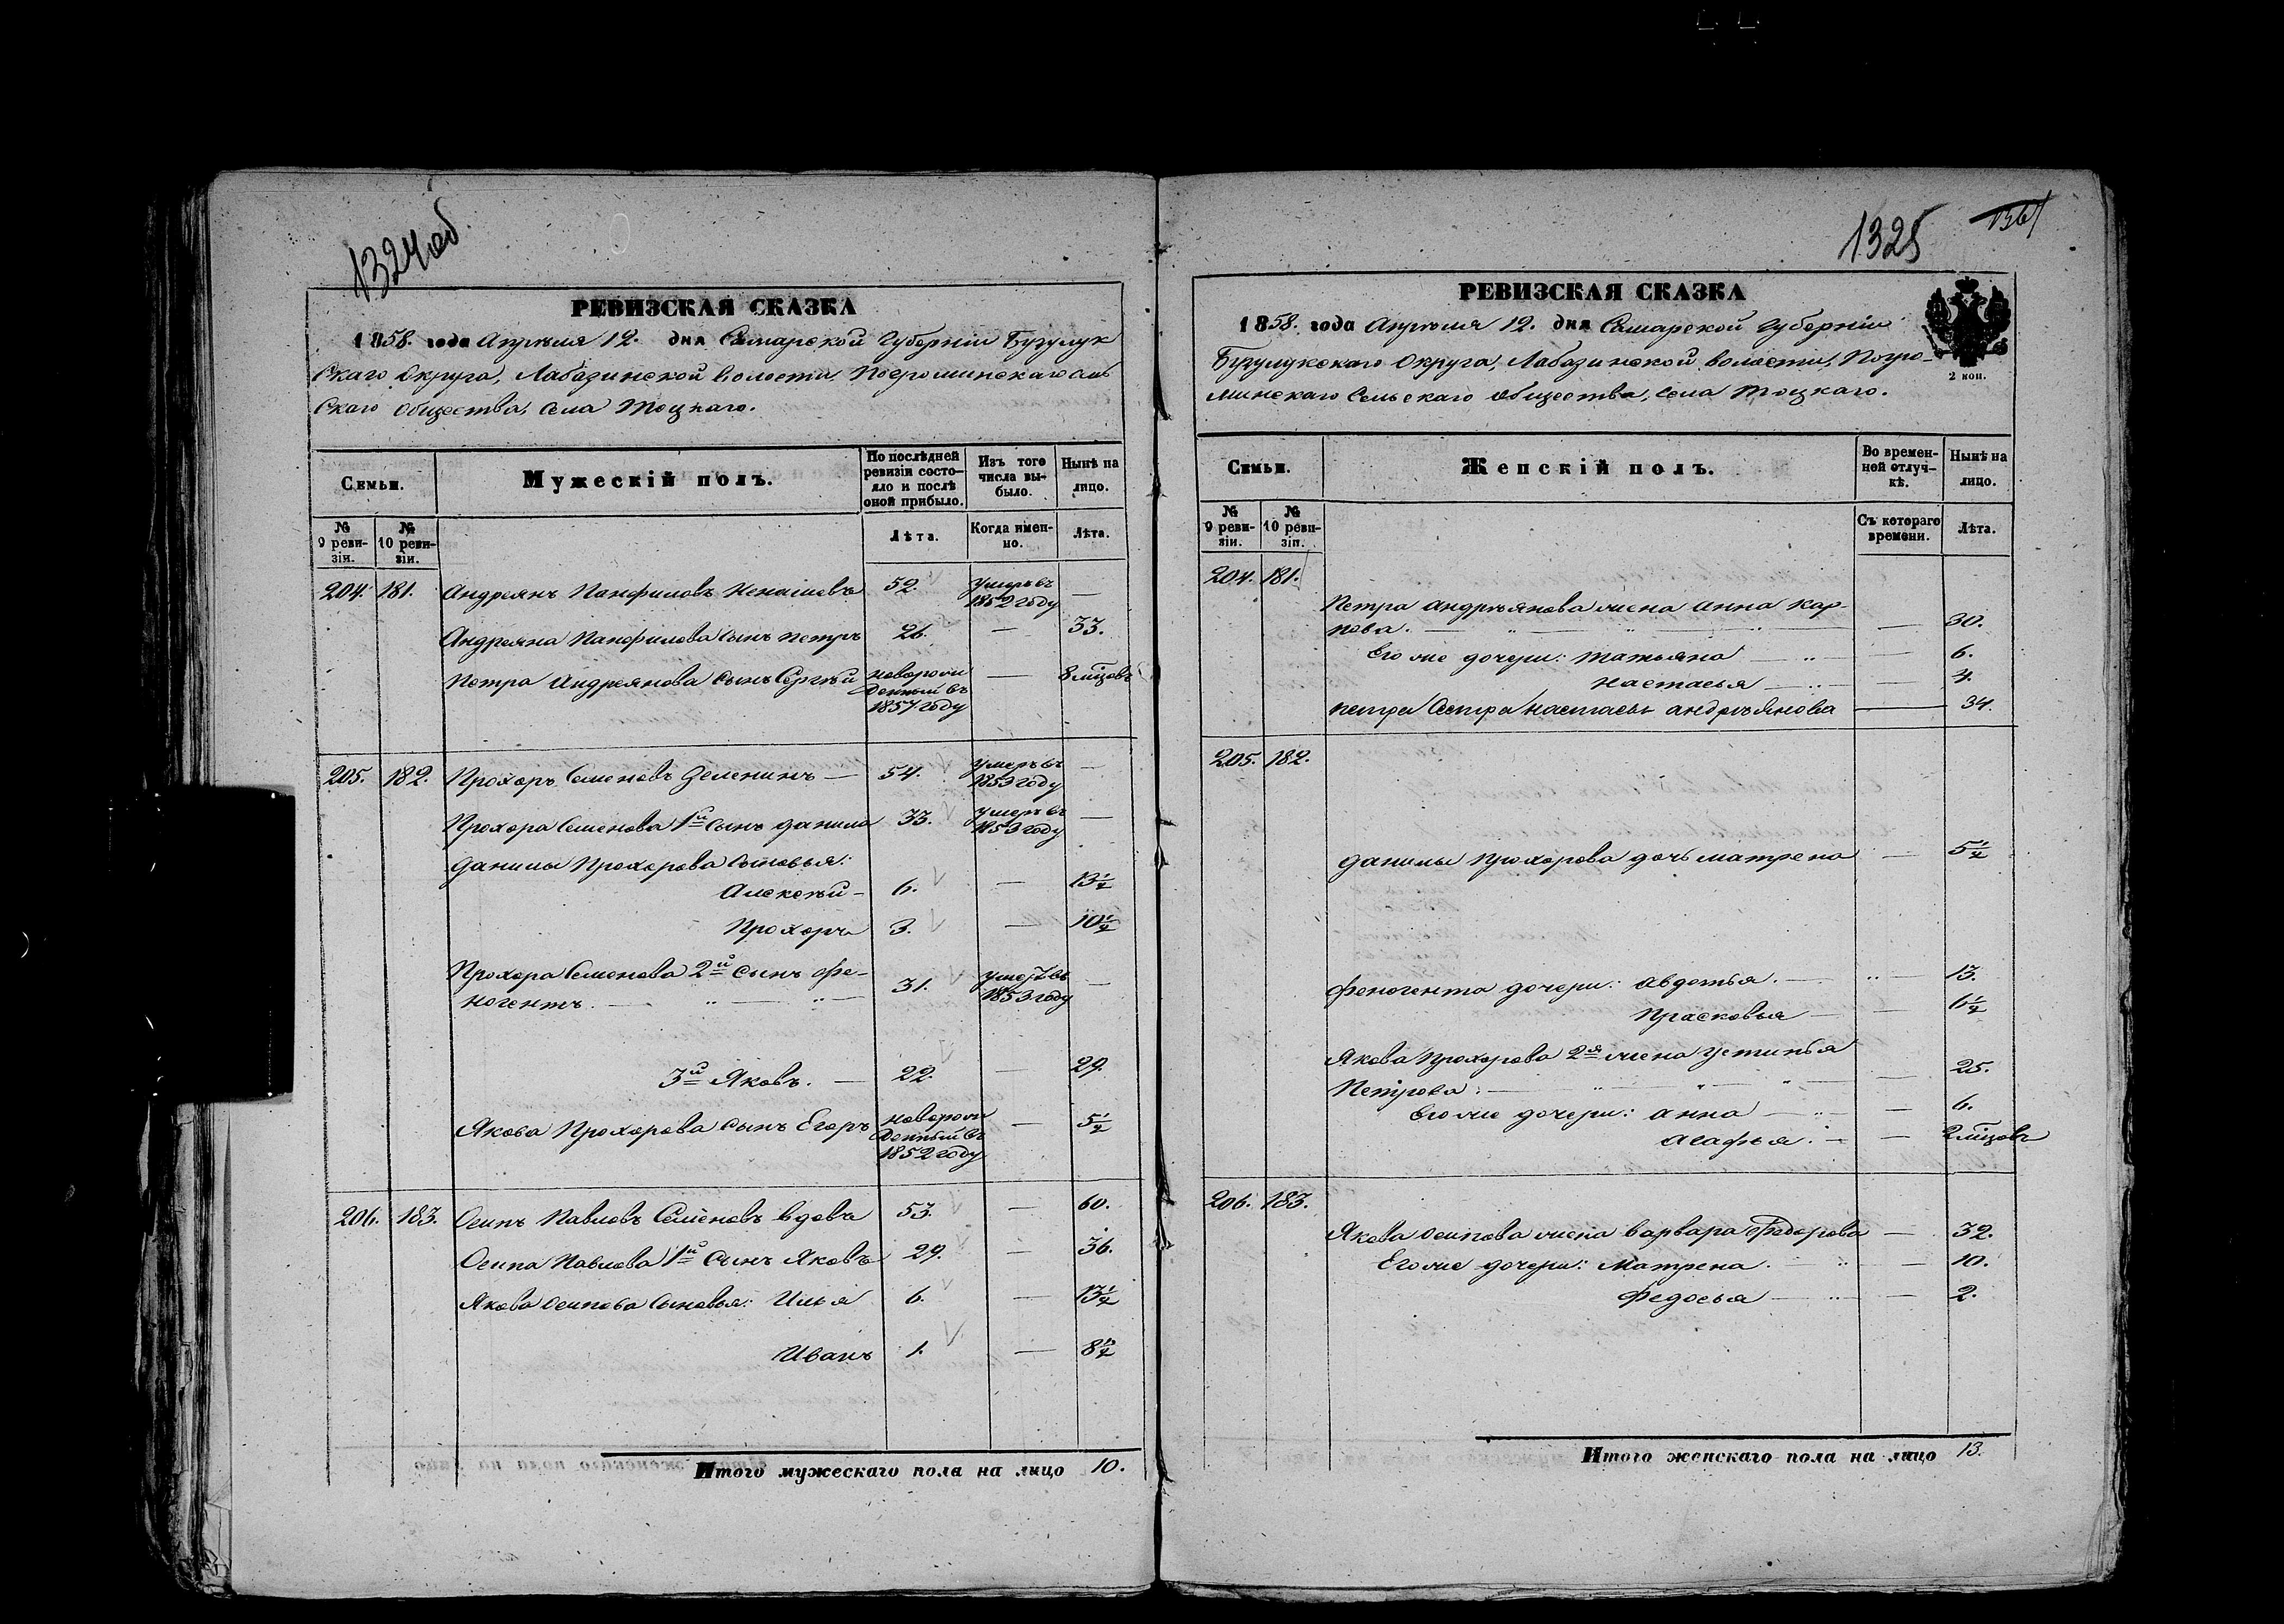 1324об
РЕВИЗСКАЯ СКАЗКА
1858. года Апрѣля 12. дня Самарской Губерніи Бузулук
скаго Округа, Лабазинской волости, Погроминскаго сель
скаго общества, села Тоцкаго.
Семьи.
Мужескій полъ.
По послѣдней ревизіи состояло и послѣ оной прибыло.
Изъ того числа выбыло.
Нынѣ на лицо.
№ 9 ревизіи.
№ 10 ревизіи.
Лѣта.
Когда именно.
Лѣта.
204. 181. Андреянъ Панфиловъ Ненашевъ 52. Умеръ въ 1852 году —
Андреяна Панфилова сынъ петръ 26. — 33.
Петра Андреянова сынъ Сергѣй новорожденный въ 1857 году — 8 мѣсцовъ
205. 182. Прохоръ Семеновъ Зеленинъ — 54. Умеръ въ 1853 году —
Прохора Семенова 1й сынъ данила 33. Умеръ въ 1853 году —
данилы Прохорова сыновья:
Алексѣй – 6. — 13½
Прохоръ 3. — 10½
Прохора Семенова 2й сынъ фе-
ногентъ. — 31. Умеръ въ 1853 году —
3й Яковъ. — 22. — 29.
Якова Прохорова сынъ Егоръ новорожденный въ 1852 году — 5½
206. 183. Осипъ Павловъ Семеновъ вдовъ 53. — 60.
Осипа Павлова 1й сынъ Яковъ 29. — 36.
Якова Осипова сыновья: Илья 6. — 13½
Иванъ 1. — 8½
Итого мужескаго пола на лицо 10.
1325
РЕВИЗСКАЯ СКАЗКА
1858. года Апрѣля 12. дня Самарской Губерніи
Бузулукскаго Округа, Лабазинской волости, Погро-
минскаго сельскаго общества, села Тоцкаго.
2 коп.
Семьи.
Женскій полъ.
Во временной отлучкѣ.
Нынѣ на лицо.
№ 9 ревизіи.
№ 10 ревизіи.
Съ котораго времени.
Лѣта.
204. 181.
Петра андрѣянова жена анна кар-
пова. — — 30.
Его же дочери: татьяна — — 6.
настасья — — 4.
петра сестра настасья андрѣянова — 34.
205. 182.
данилы прохорова дочь матрена — 5½
феногента дочери: авдотья. — 13.
Прасковья — — 6½
Якова Прохорова 2я жена устинья
Петрова: — — 25.
Его же дочери: анна — — 6.
агафья: — — 2 мѣсцовъ
206. 183.
Якова осипова жена варвара федорова — 32.
Его же дочери: Матрена. — — 10.
федосья — — 2.
Итого женскаго пола на лицо 13.